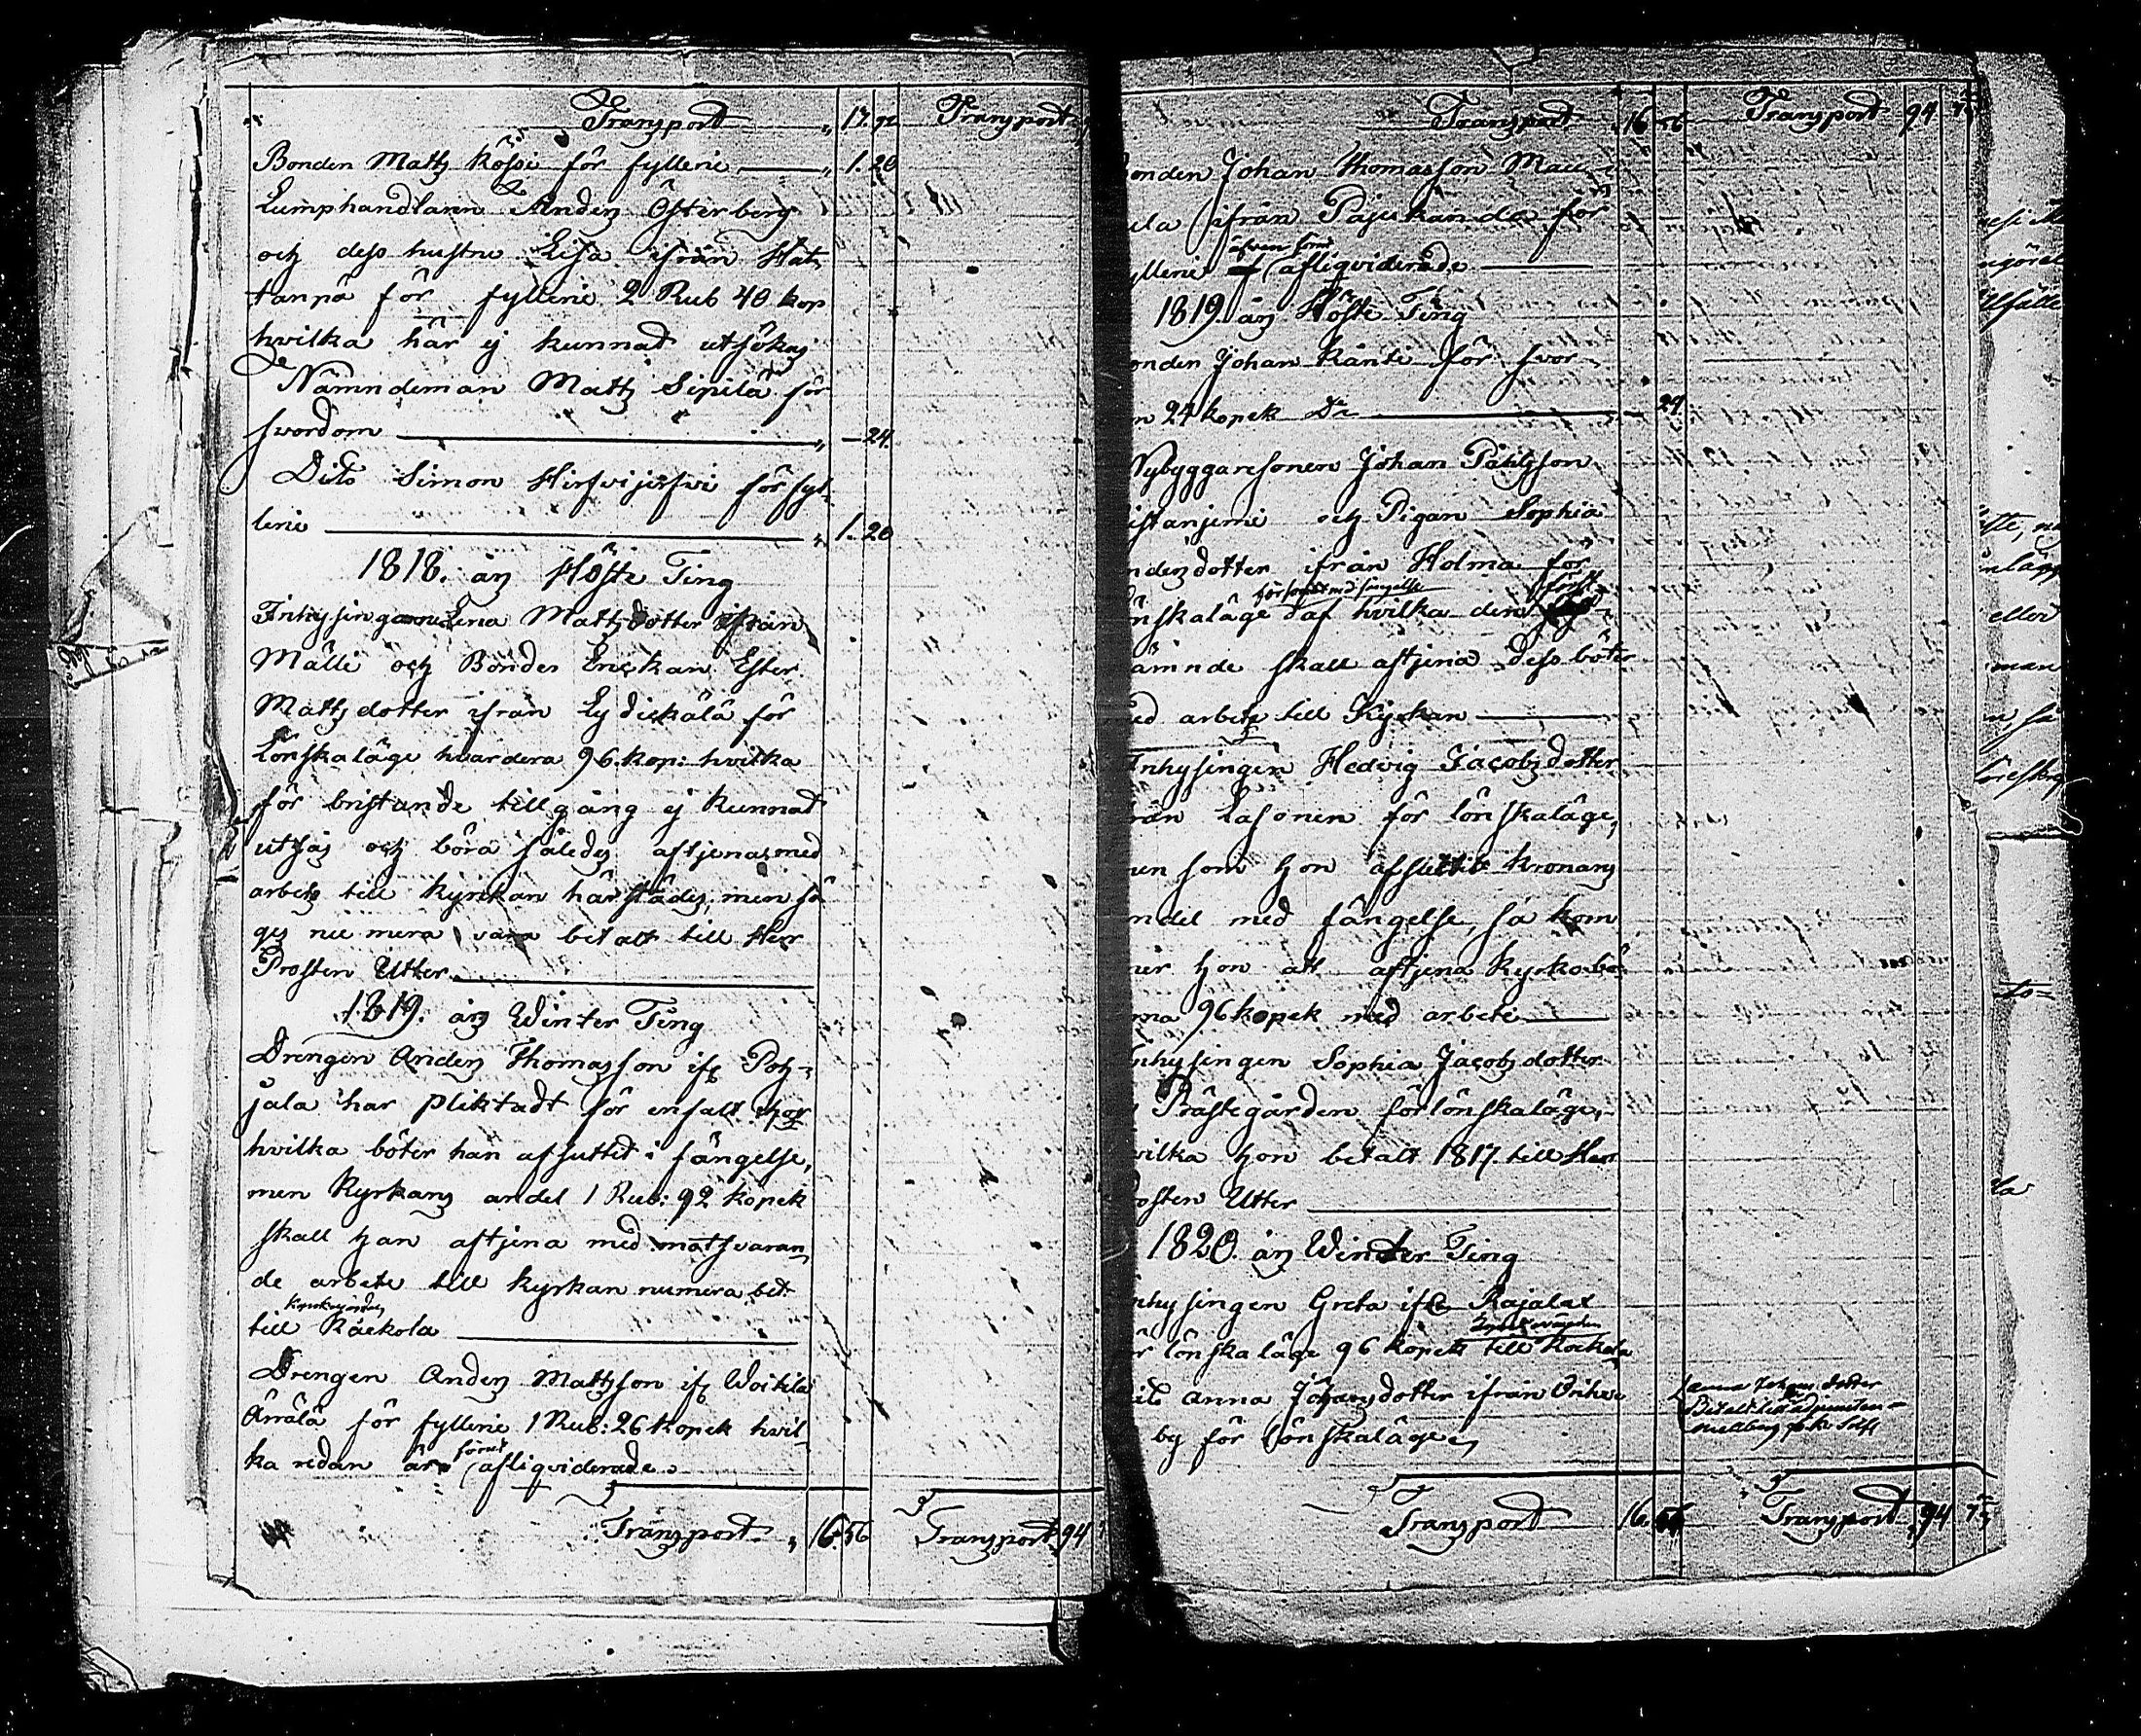 Transport " 17. 92 Transport
Bonden Matts Kössi för fyllerie " 1. 20
Lumphandlaren Anders Österberg
och dess hustru Lisa ifrån Hat
tanpä för fyllerie 2 Rub 40 kop
hvilka här ej kunnad utsökas
Nämndeman Matts Sipilä för
svordom " — 24.
Dito Simon Hirsvijersvi för fyl-
lerie " 1. 20
1818. års Höste Ting
Inhysinge Lena Mattsdotter ifrån
Mälli och Bonde Enckan Ester
Mattsdotter ifrån Lydickälä för
Lönskaläge hvardera 96. kop: hvilka
för bristande tillgång ej kunnad
uttas och böra således aftjenas med
arbete till kyrkan härstädes, men sä
ges nu mera vara betalt till Herr
Prosten Utter
1819. års Winter Ting
Drengen Anders Thomasson if: Poh-
jala har pliktadt för enfalt hor
hvilka böter han afsuttit i fängelse,
men Kyrkans andel 1 Rub: 92 kopek
skall han aftjena med motsvaran
de arbete till kyrkan numera bet
till Räckola
Drengen Anders Mattsson if: Woitila
Ärrälä för fyllerie 1 Rub: 26 kopek hvil-
ka redan är förut afliqviderade.
Transport " 16. 56 Transport 94
Transport 16 56 Transport 94
onden Johan Thomasson Mat
ula ifrån Pajukanda för
yllerie äfven förut afliqviderade
1819. års Höste Ting
onden Johan Känti för svor
m 24 kopek Dr — 24.
Nybyggaresonen Johan Påhlsson
istanjemi och Pigan Sophia
ndersdotter ifrån Holma för
önskaläge försonat med fängelse af hvilka den först
ämnde skall aftjena dess böter
ed arbete till Kyrkan
Inhysingen Hedvig Jacobsdotter
rån Lasonen för lönskaläge,
men som hon afsuttit Kronans
ndel med fängelse, så kom
mer hon att aftjena Kyrkobö
rna 96 kopek med arbete
nhysingen Sophia Jacobsdotter
Prästegården för lönskaläge,
vilka hon betalt 1817. till Herr
osten Utter
1820. års Winter Ting
nhysingen Greta if: Rajalax
ör lönskaläge 96 kopek till Rockola
ito Anna Johansdotter ifrån Örike
by för lönskaläge Anna Johans dotter
Betalt till adjuncten
Transport 16. 56 Transport 94